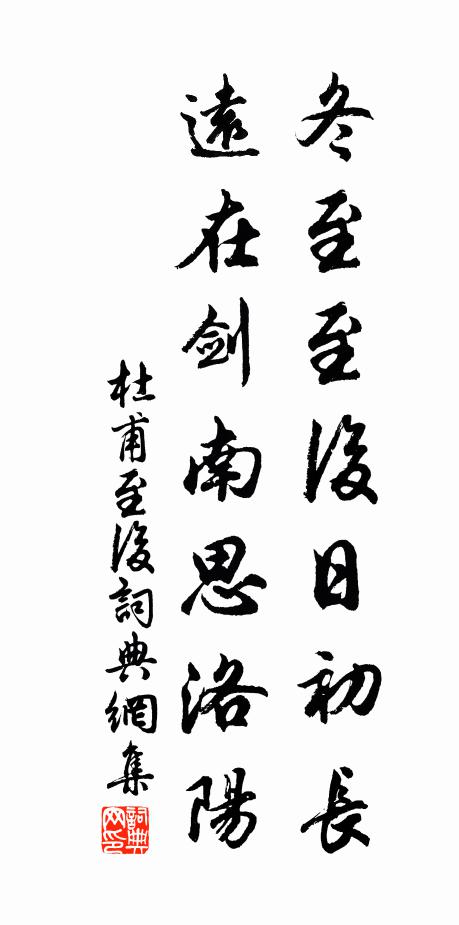 冬至至後日初長
遠在劍南思洛陽
杜甫至後詞典網集
詞典網印